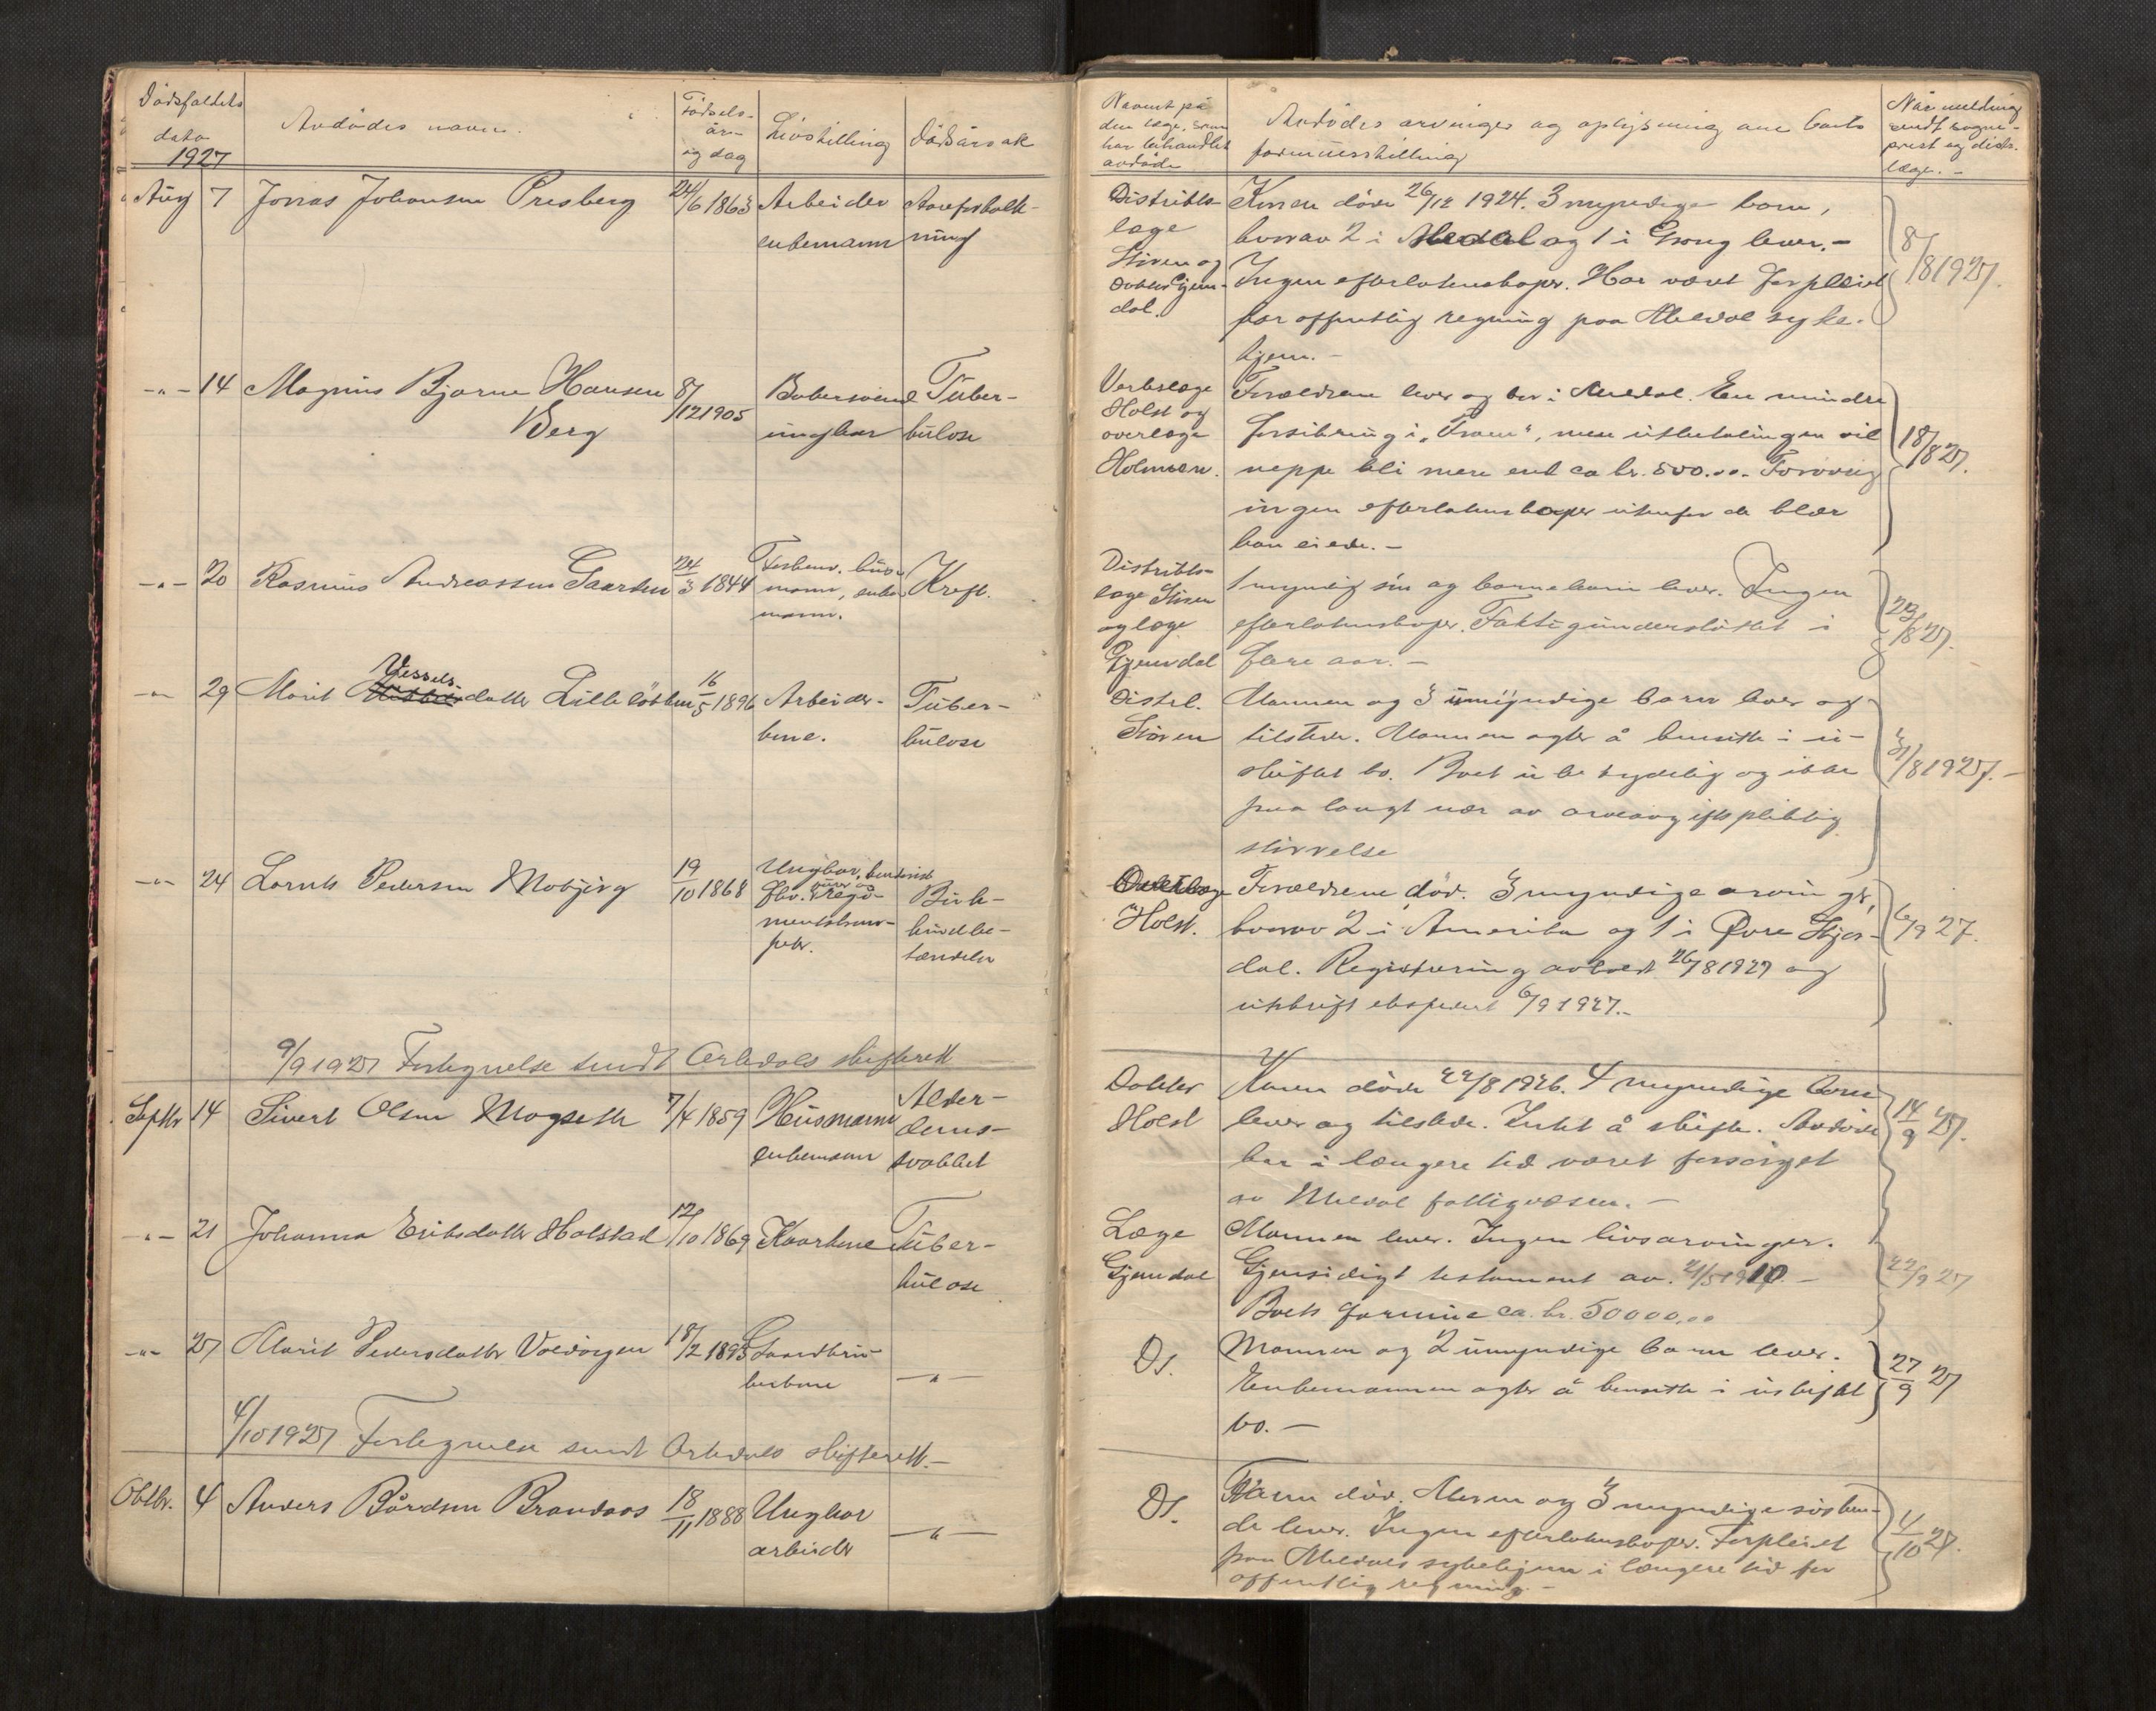 Dödsfaldets
dato
1927
Avdödes navn.
Födsels-
år-
og dag
Livsstilling
Dödsårsak
Aug 7 Jonas Johansen Presberg 24/6 1863 Arbeider Aareforkalk-
enkemann ning
-"- 14 Magnus Bjarne Hansen 8/12 1905 Bakersvend Tuber-
Berg ungkar kulose
-"- 20 Rasmus Andreassen Gaarden 24/3 1844 Forhenv. hus- Kreft.
mann, enke-
mann.
-"- 29 Marit Vessels-
datter Lilleløkken 16/5 1896 Arbeider- Tuber-
kone. kulose
-"- 24 Lornts Pedersen Mobjerg 19/10 1868 Ungkar,
fhv. Buk-
hindebe-
tændelse
9/9 1927 Fortegnelse sendt Orkedals skifterett
Septbr 14 Sivert Olsen Mogseth 7/4 1859 Husmann Alder-
enkemann doms-
svakhet
-"- 21 Johanna Eriksdatter Halstad 12/10 1869 Kaarkone Tuber-
kulose
-"- 27 Marit Pedersdatter 18/2 1893 Gaardbru-
kerkone -"-
4/10 1927 Fortegnelse sendt Orkedals skifterett.-
Oktbr. 4 Anders Bårdsen Brandaas 18/11 1888 Ungkar
arbeider -"-
Navnet på
den læge, som
har behandlet
avdöde
Avdödes arvinger og oplysning om boets
formuesstilling
Når melding
sendt sogne-
prest og distr.
læge.-
Distrikts-
læge
Støren og
Doktor Gjem-
dal.
Konen døde 26/12 1924. 3 myndige barn,
hvorav 2 i Meldal og 1 i Grong lever.-
Ingen efterlatenskaper. Har været forpleiet
for offentlig regning paa Meldal syke-
hjem.-
8/8 1927.
Verkslæge
Holst og
overlæge
Holmsen.
Forældrene lever og bor i Meldal. En mindre
forsikring i "Fram", men utbetalingen vil
neppe bli mere end ca kr. 500.00. Forøvrig
ingen efterlatenskaper utenfor de klær
han eiede.-
18/8 27.
Distrikts-
læge Støren
og læge
Gjemdal
1 myndig søn og barnebarn lever. Ingen
efterlatenskaper. Fattigunderstøttet i
flere aar.-
23/8 27.
Distrl.
Støren
Mannen og 3 umyndige barn lever og
tilstede. Mannen agter å hensitte i u-
skiftet bo. Boet ubetydelig og ikke
paa langt nær av arveavgiftspliktig
størrelse
31/8 1927.-
Holst.
Forældrene død. 3 myndige arvinger,
hvorav 2 i Amerika og 1 i Øvre Stjør-
dal. Registrering avholdt 26/8 1927 og
utskrift ekspedert 6/9 1927.-
6/9 27.
Doktor
Holst
Konen døde 22/8 1926. 4 myndige barn
lever og tilstede. Intet å skifte. Avdøde
har i længere tid været forsørget
av Meldal fattigvæsen.-
14/9 27.
Læge
Gjemdal
Mannen lever. Ingen livsarvinger.
Gjensidigt testament av. 21/5 1910.-
Boets formue ca. kr. 50000,00
22/9 27
Ds.
Mannen og 2 umyndige barn lever.
Enkemannen agter å hensitte i uskiftet
bo.-
27/9 27
Ds.
Faren död. Moren og 3 myndige sösken-
de lever. Ingen efterlatenskaper. Forpleiet
paa Meldals sykehjem i længere tid for
offentlig regning.-
4/10 27.